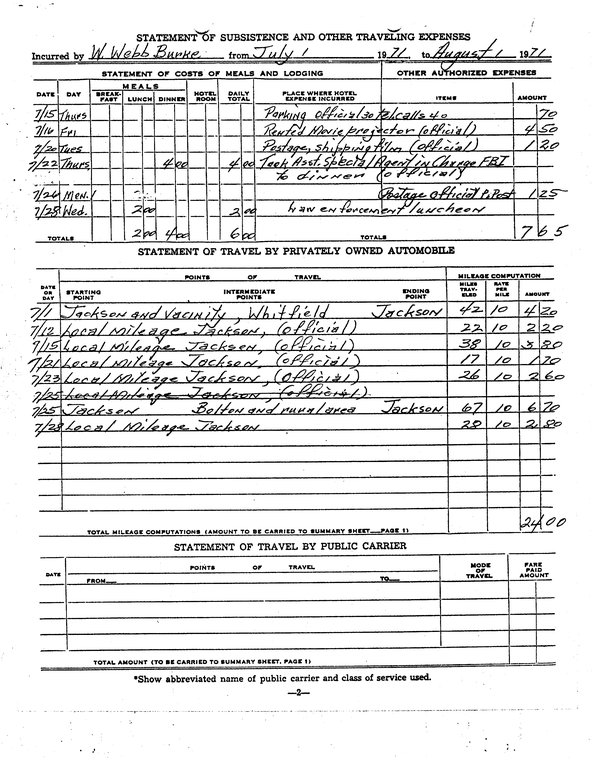 STATEMENT OF SUBSISTENCE AND OTHER TRAVELING EXPENSES
Incurred by W. Webb Burke from July 1 1971, to August 1 1971
STATEMENT OF COSTS OF MEALS AND LODGING OTHER AUTHORIZED EXPENSES
DATE DAY MEALS BREAK-FAST LUNCH DINNER HOTEL ROOM DAILY TOTAL PLACE WHERE HOTEL EXPENSE INCURRED ITEMS AMOUNT
7/15 Thurs Parking official 30 Tel calls 40 70
7/16 Fri Rented Movie projector (official) 4 50
7/20 Tues Postage, shipping film (official) 1 20
7/22 Thurs 4 00 4 00 Took Asst. Special Agent in Charge FBI
to dinner (official)
7/26 Mon. Postage official P. Post 1 25
7/28 Wed. 2 00 2 00 Law enforcement luncheon
TOTALS 2 00 4 00 6 00 TOTALS 7 65
STATEMENT OF TRAVEL BY PRIVATELY OWNED AUTOMOBILE
DATE OR DAY POINTS OF TRAVEL MILEAGE COMPUTATION
STARTING POINT INTERMEDIATE POINTS ENDING POINT MILES TRAV-ELED RATE PER MILE AMOUNT
7/1 Jackson and Vacinity, Whitfield Jackson 42 10 4 20
7/12 Local Mileage Jackson, (official) 22 10 2 20
7/15 Local Mileage Jackson, (official) 38 10 3 80
7/21 Local Mileage Jackson, (official) 17 10 1 70
7/23 Local Mileage Jackson, (official) 26 10 2 60
7/25 Local Mileage Jackson, (official)
7/25 Jackson Bolton and rural area Jackson 67 10 6 70
7/28 Local Mileage Jackson 28 10 2 80
TOTAL MILEAGE COMPUTATIONS (AMOUNT TO BE CARRIED TO SUMMARY SHEET PAGE 1) 24 00
STATEMENT OF TRAVEL BY PUBLIC CARRIER
DATE POINTS OF TRAVEL MODE OF TRAVEL FARE PAID AMOUNT
FROM TO
TOTAL AMOUNT (TO BE CARRIED TO SUMMARY SHEET, PAGE 1)
*Show abbreviated name of public carrier and class of service used.
—2—